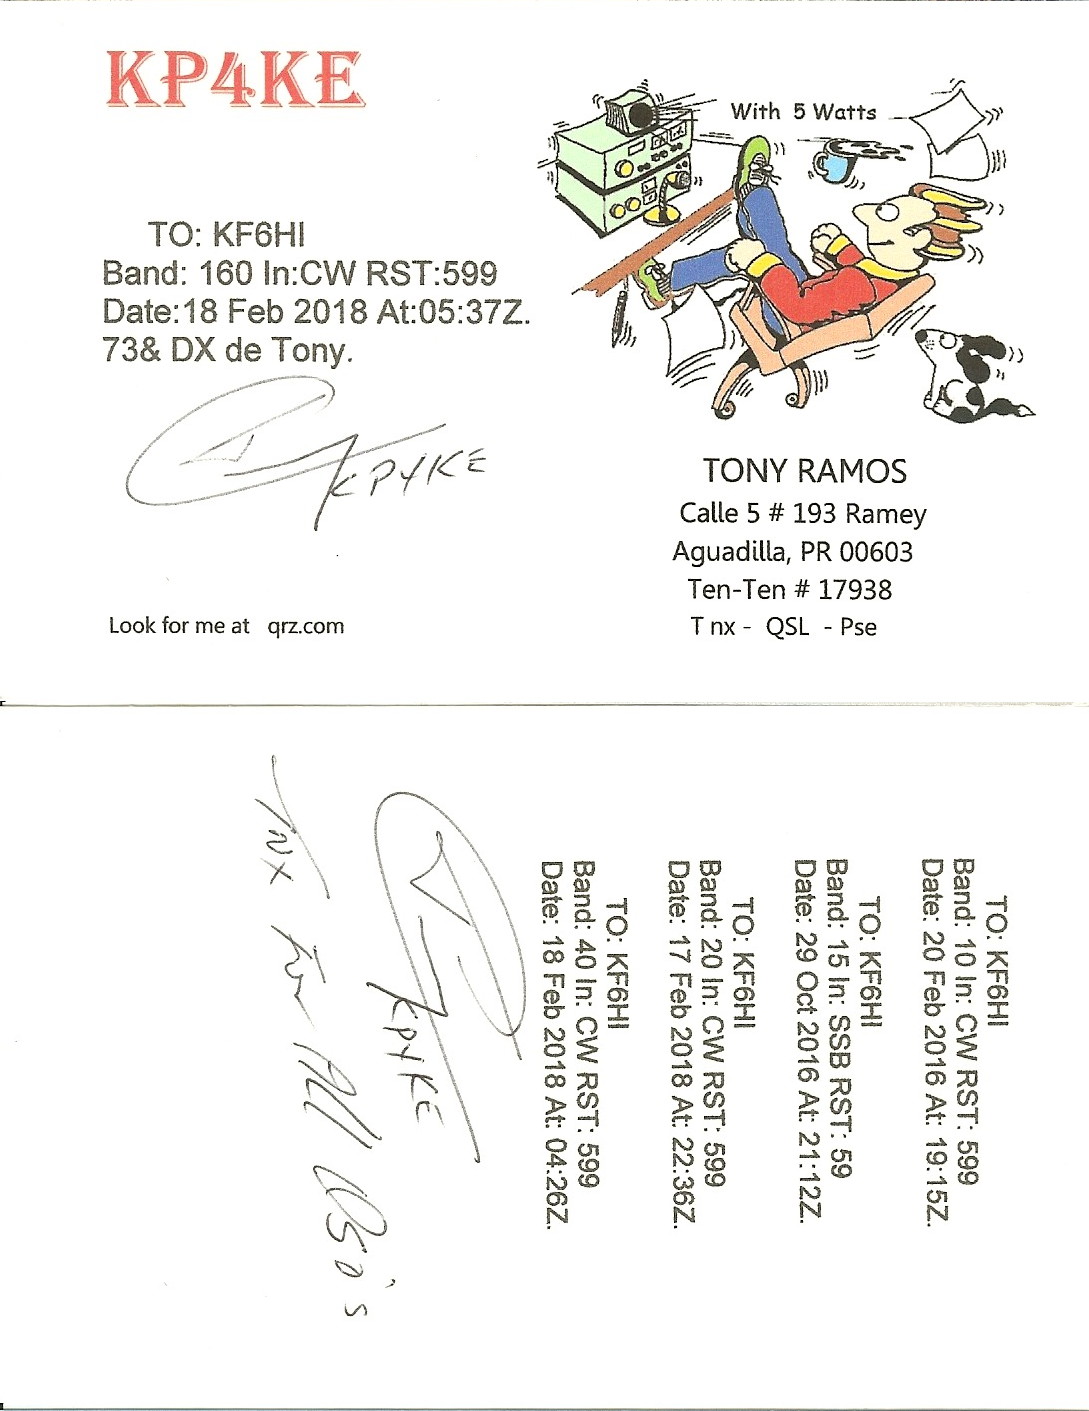 KP4KE
With 5 Watts
TO: KF6HI
Band: 160 In:CW RST:599
Date:18 Feb 2018 At:05:37Z.
73& DX de Tony.
KP4KE
TONY RAMOS
Calle 5 # 193 Ramey
Aguadilla, PR 00603
Ten-Ten # 17938
Tnx - QSL - Pse
Look for me at qrz.com
TO: KF6HI
Band: 10 In: CW RST: 599
Date: 20 Feb 2016 At: 19:15Z.
TO: KF6HI
Band: 15 In: SSB RST: 59
Date: 29 Oct 2016 At: 21:12Z.
TO: KF6HI
Band: 20 In: CW RST: 599
Date: 17 Feb 2018 At: 22:36Z.
TO: KF6HI
Band: 40 In: CW RST: 599
Date: 18 Feb 2018 At: 04:26Z.
KP4KE
Tnx for All QSO's